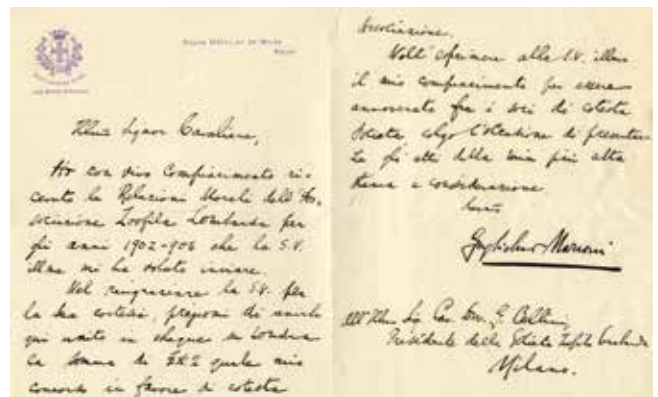 GRAND HÔTEL ET DE MILAN
MILAN
Illmo Signor Cavaliere,
Ho con vivo compiacimento ri-
cevuto le Relazioni Morali dell'As-
sociazione Zoofila Lombarda per
gli anni 1902-906 che la S.V.
Illma mi ha voluto inviare.
Nel ringraziare la S.V. per
la sua cortesia, pregiomi di unirle
qui unito un cheque su Londra
la somma di quale mio
concorso in favore di cotesta
Associazione.
Voll' esprimere alla S.V. Illma
il mio compiacimento per essere
annoverato fra i soci di cotesta
Società colgo l'occasione di presentar-
Le gli atti della mia più alta
stima e considerazione
Guglielmo Marconi
All' Illmo Sig. Cav. G.
Presidente della Società Zoofila Lombarda
Milano.